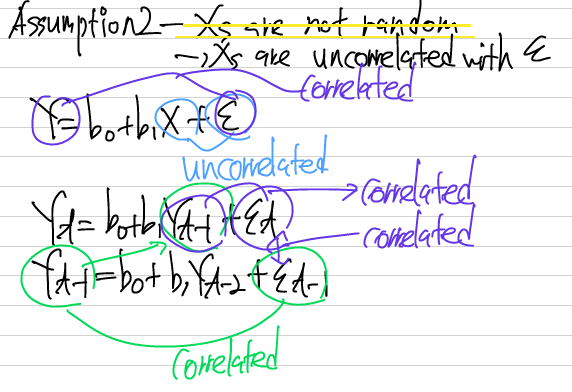 Assumption2 - Xs are not random
→ Xs are uncorrelated with ε
correlated
Y = b₀+b₁X + ε
uncorrelated
Yₜ = b₀+b₁Yₜ₋₁ + εₜ
correlated
correlated
Yₜ₋₁ = b₀ + b₁Yₜ₋₂ + εₜ₋₁
correlated